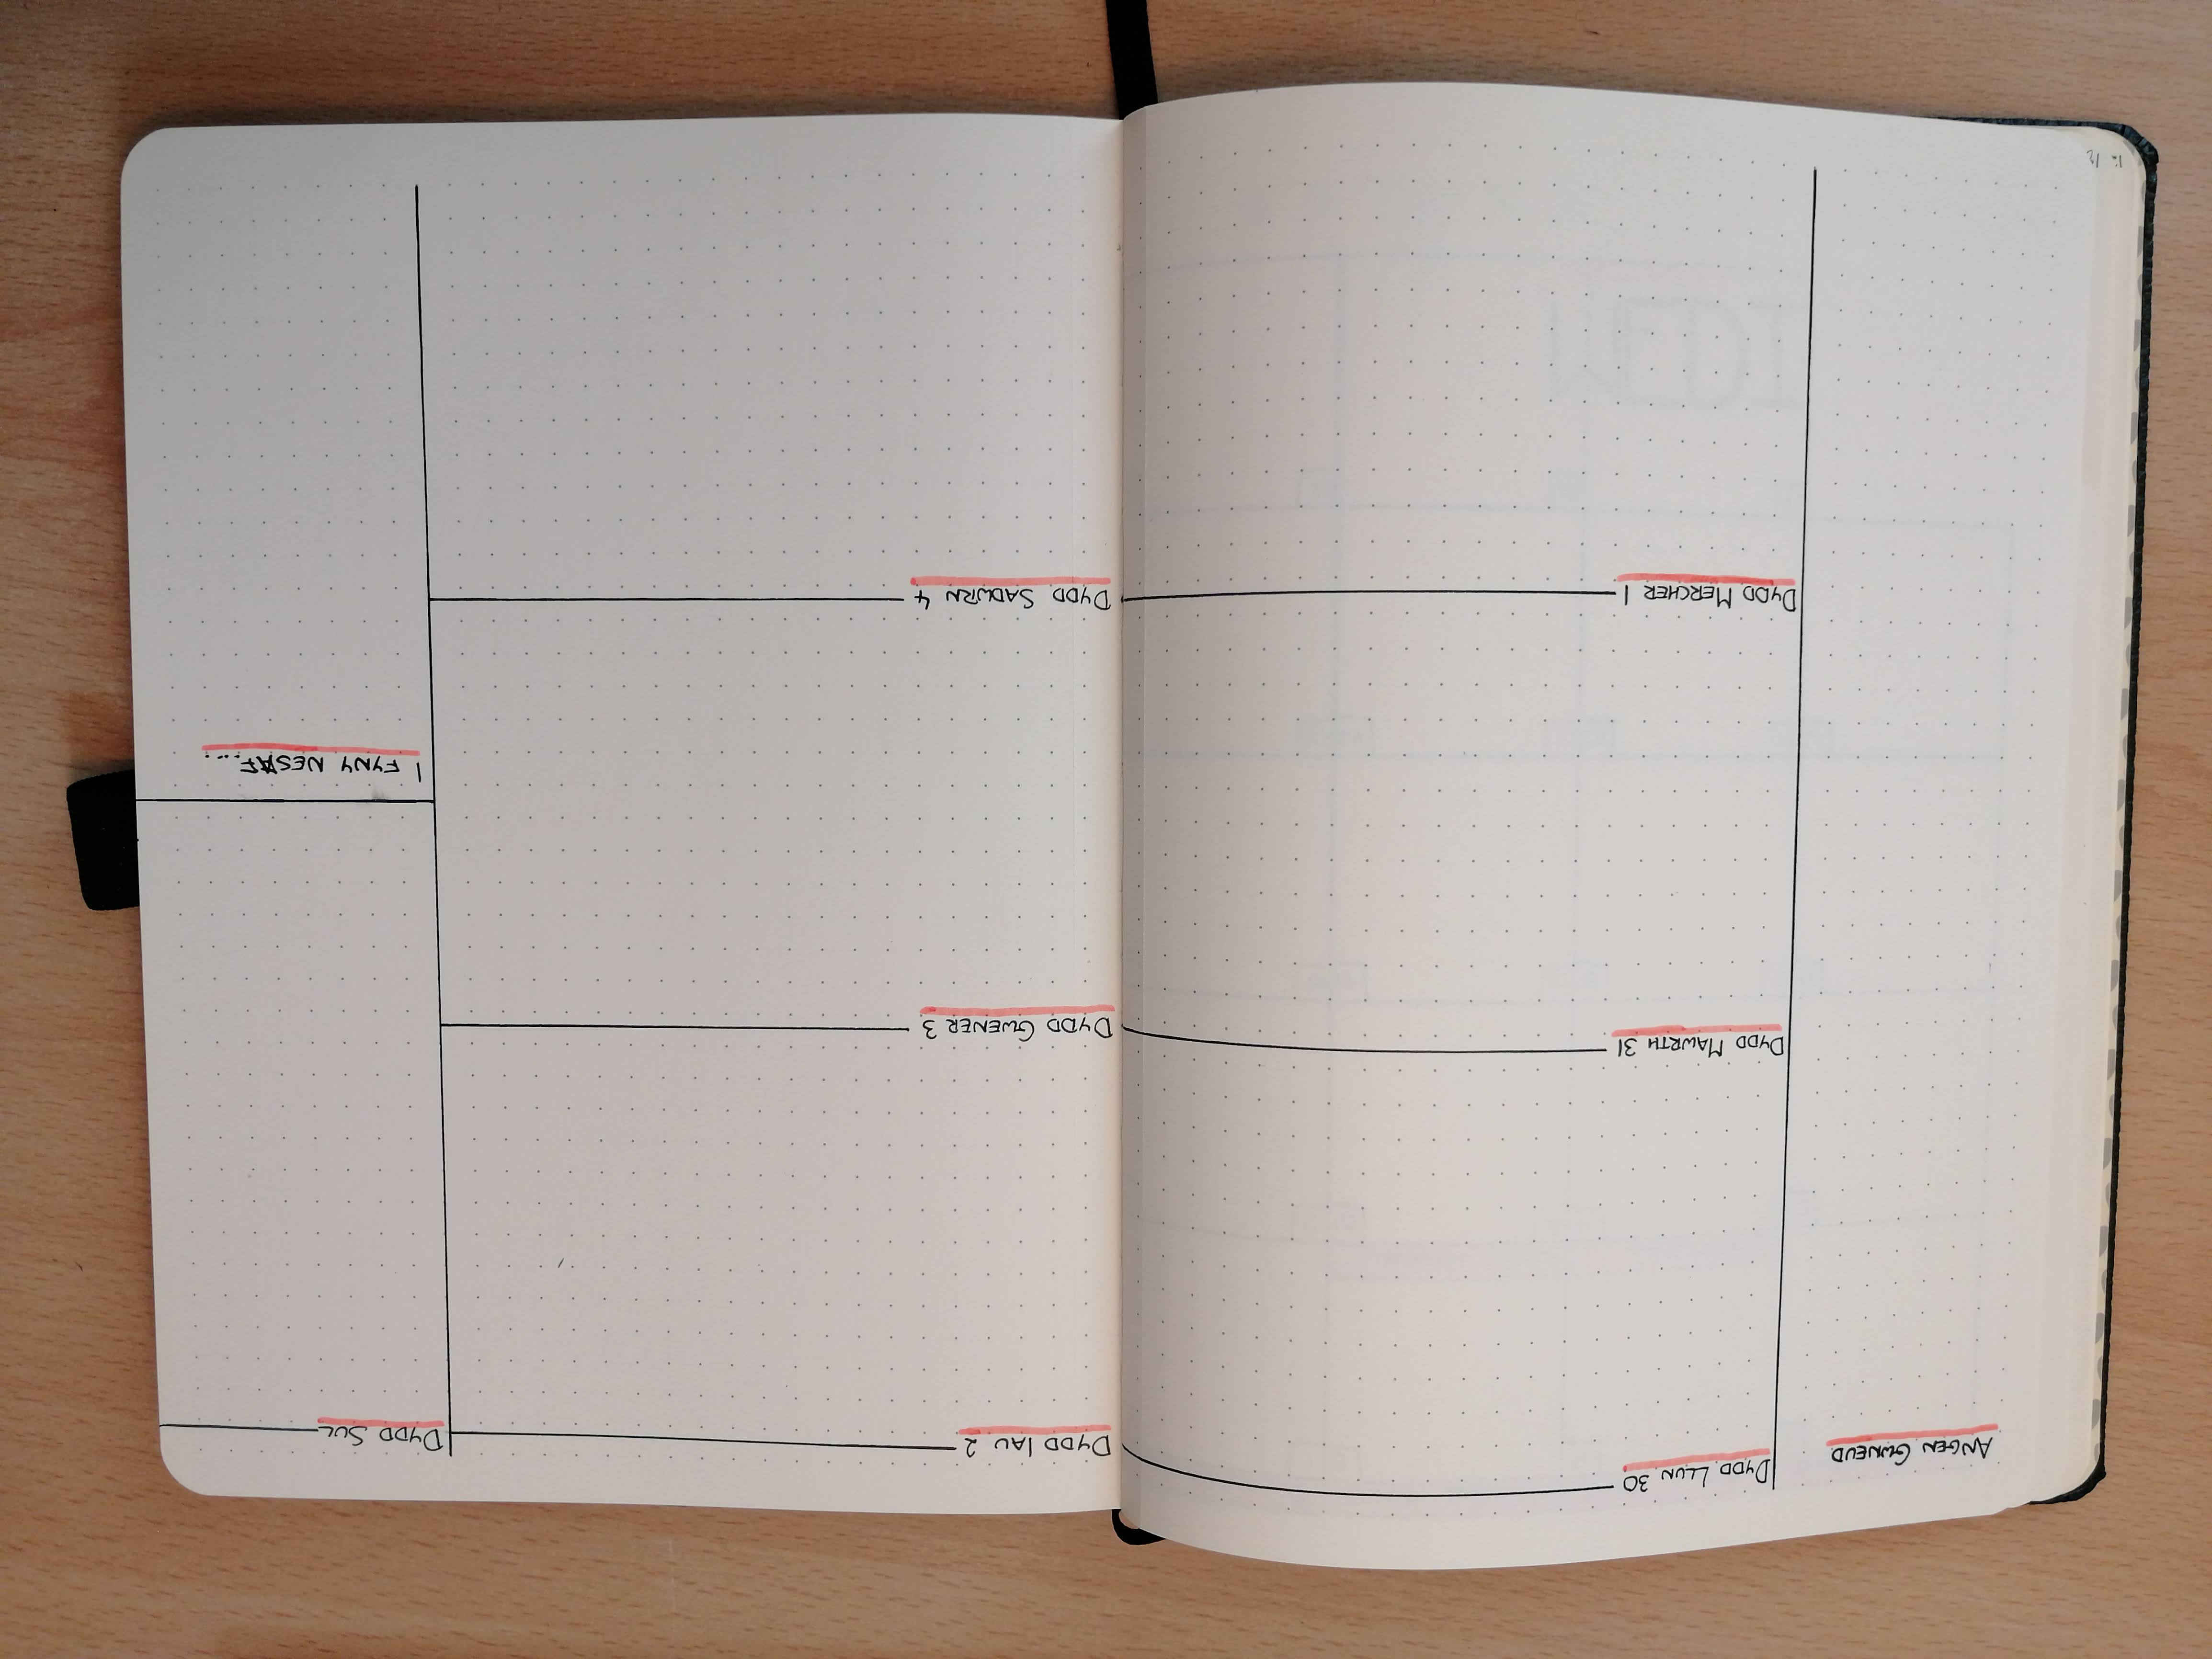 ANGEN GWNEUD
DYDD LLUN 30
DYDD MAWRTH 31
DYDD MERCHER 1
DYDD IAU 2
DYDD GWENER 3
DYDD SADWRN 4
DYDD SUL
I FYNY NESAF....
MEDI